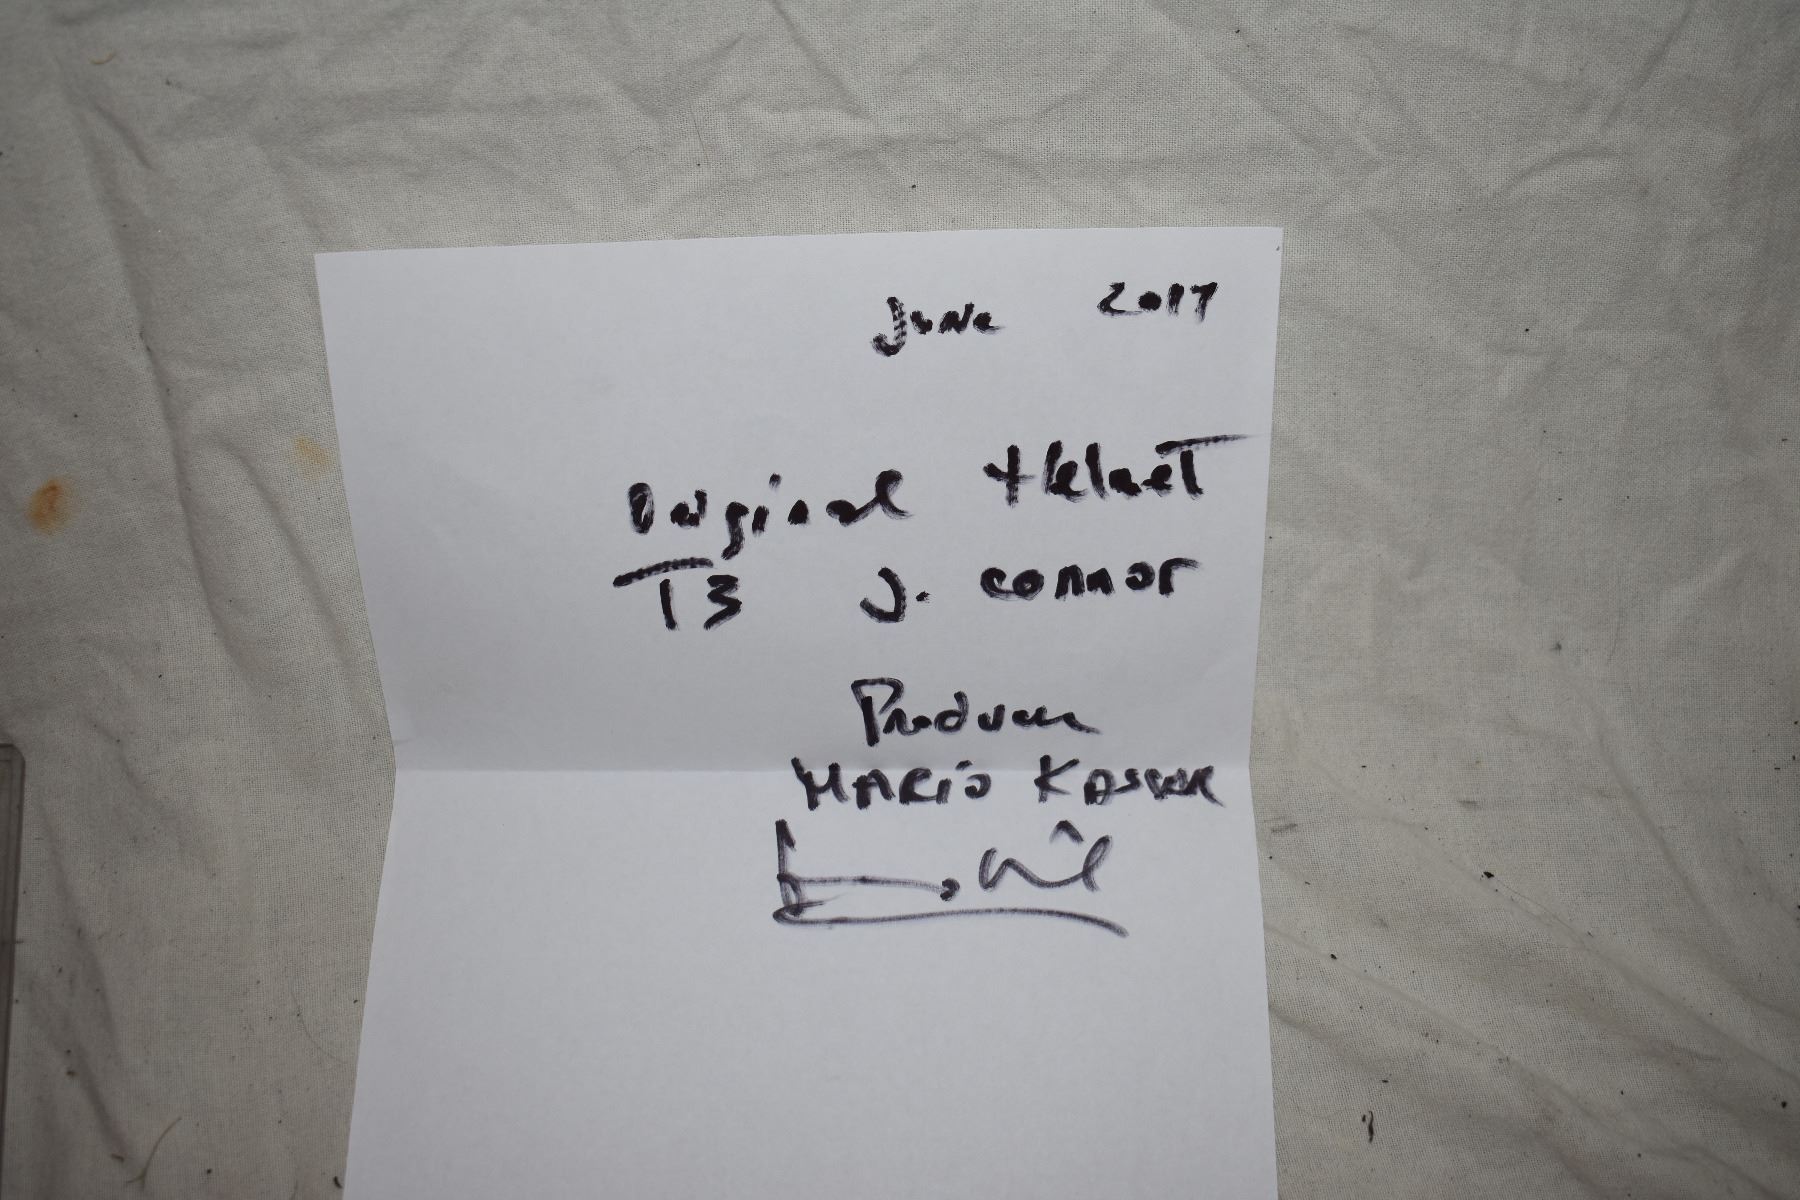 June 2017
Original Helmet
T3 J. connor
Producer
MARIO KASSAR